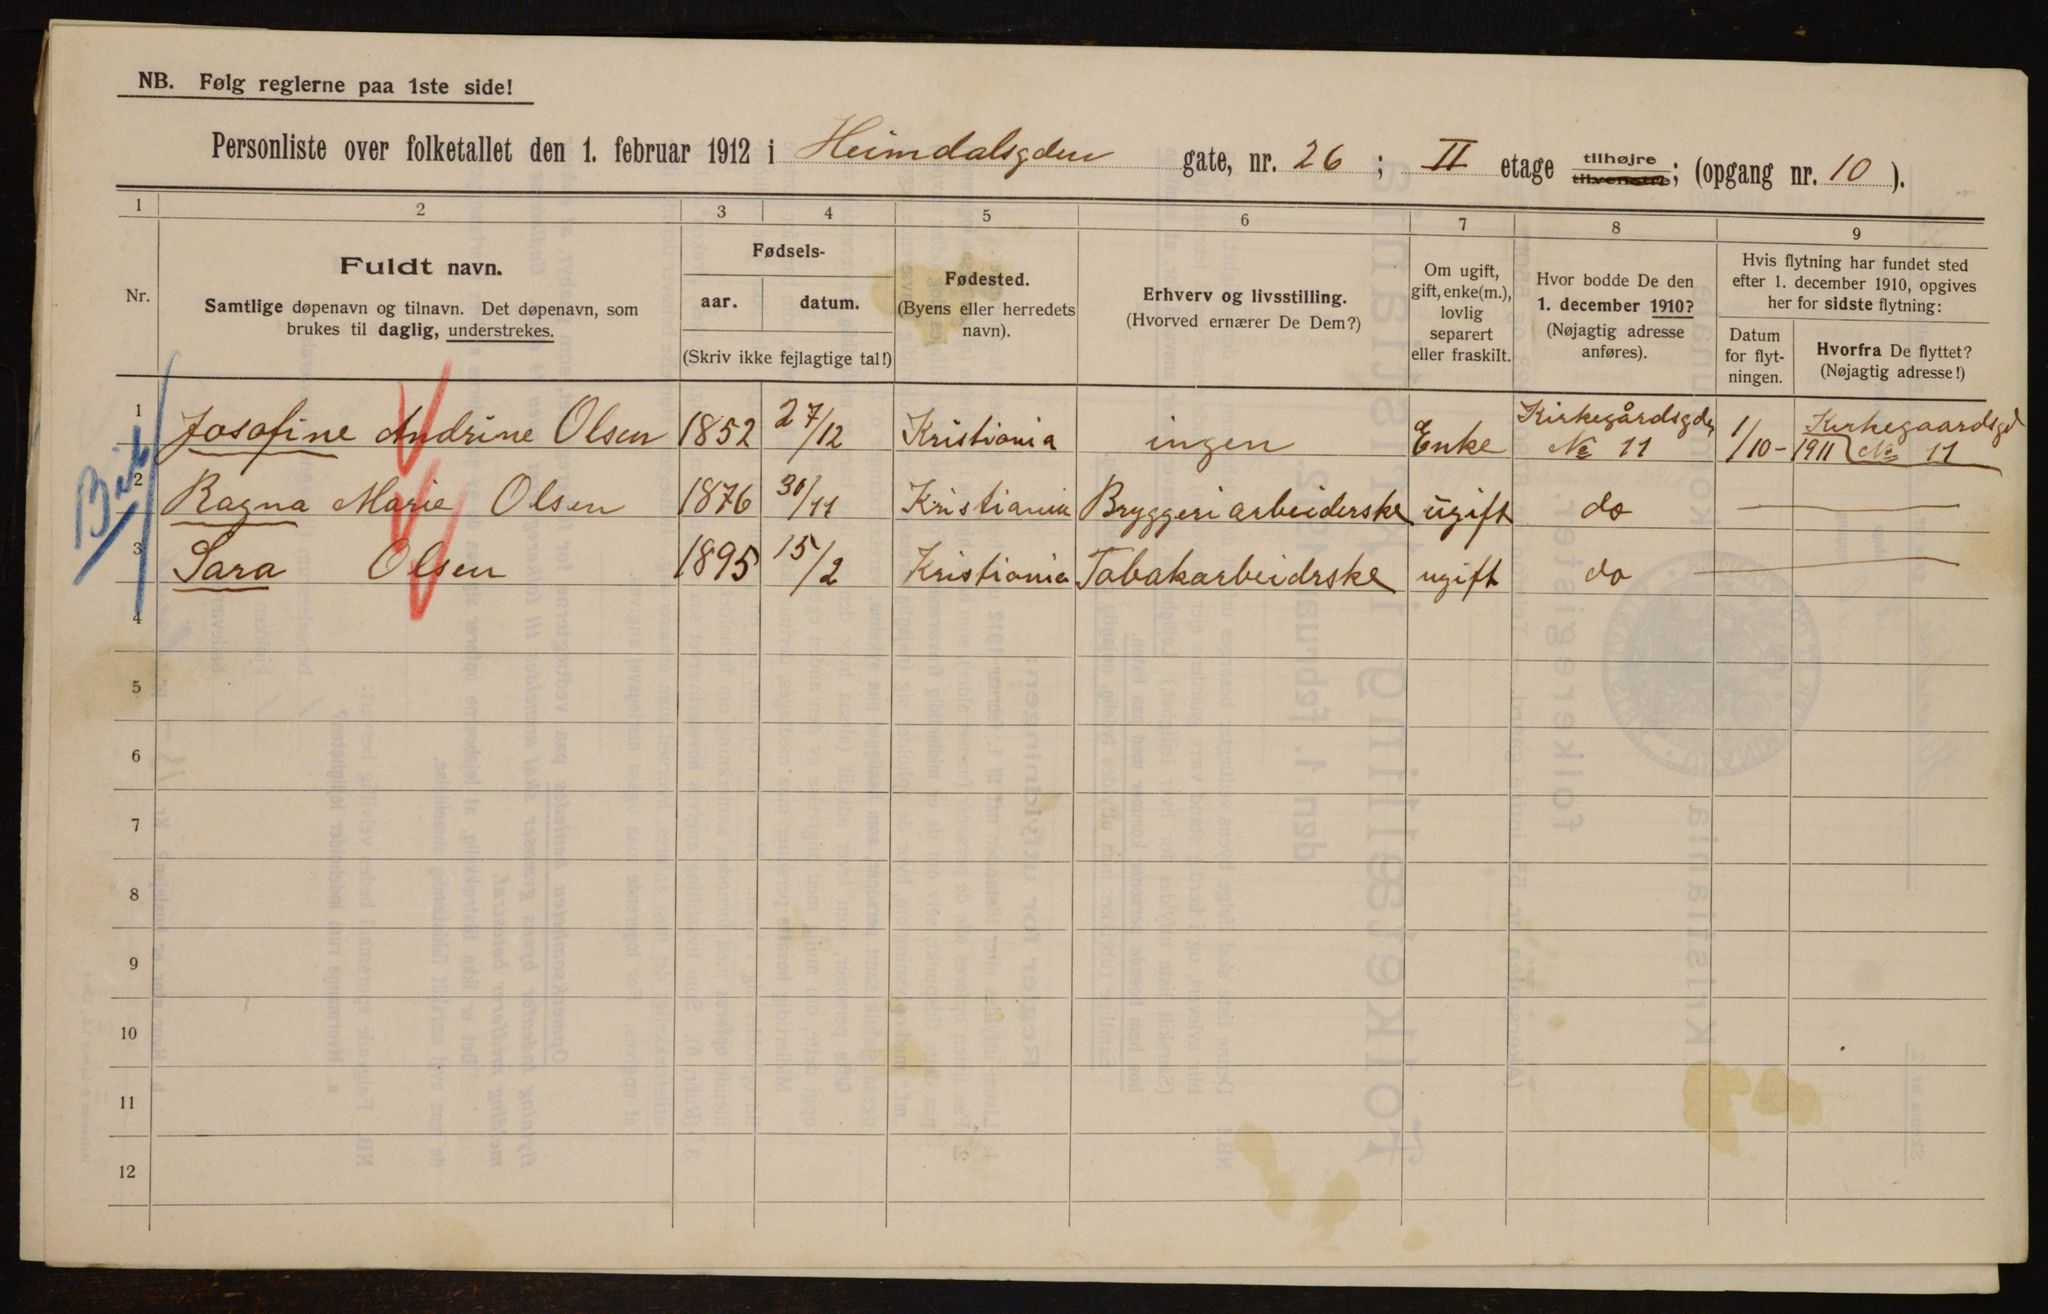 NB. Følg reglerne paa 1ste side!
Personliste over folketallet den 1. februar 1912 i Heimdalsgden gate, nr. 26 ; II etage tilhøjre tilvenstre; (opgang nr. 10 ).
1 2 3 4 5 6 7 8 9
Nr.
Fuldt navn.
Samtlige døpenavn og tilnavn. Det døpenavn, som
brukes til daglig, understrekes.
Fødsels-
aar. datum.
(Skriv ikke fejlagtige tal!)
Fødested.
(Byens eller herredets
navn).
Erhverv og livsstilling.
(Hvorved ernærer De Dem?)
Om ugift,
gift, enke(m.),
lovlig
separert
eller fraskilt.
Hvor bodde De den
1. december 1910?
(Nøjagtig adresse
anføres).
Hvis flytning har fundet sted
efter 1. december 1910, opgives
her for sidste flytning:
Datum
for flyt-
ningen.
Hvorfra De flyttet?
(Nøjagtig adresse!)
1 Josefine Andrine Olsen 1852 27/12 Kristiania ingen Enke Kirkegårdsgden № 11 1/10-1911 Kirkegaardsgd № 11
2 Ragna Marie Olsen 1876 30/11 Kristiania Bryggeriarbeiderske ugift do
3 Sara Olsen 1895 15/2 Kristiania Tobakarbeidrske ugift do
4
5
6
7
8
9
10
11
12